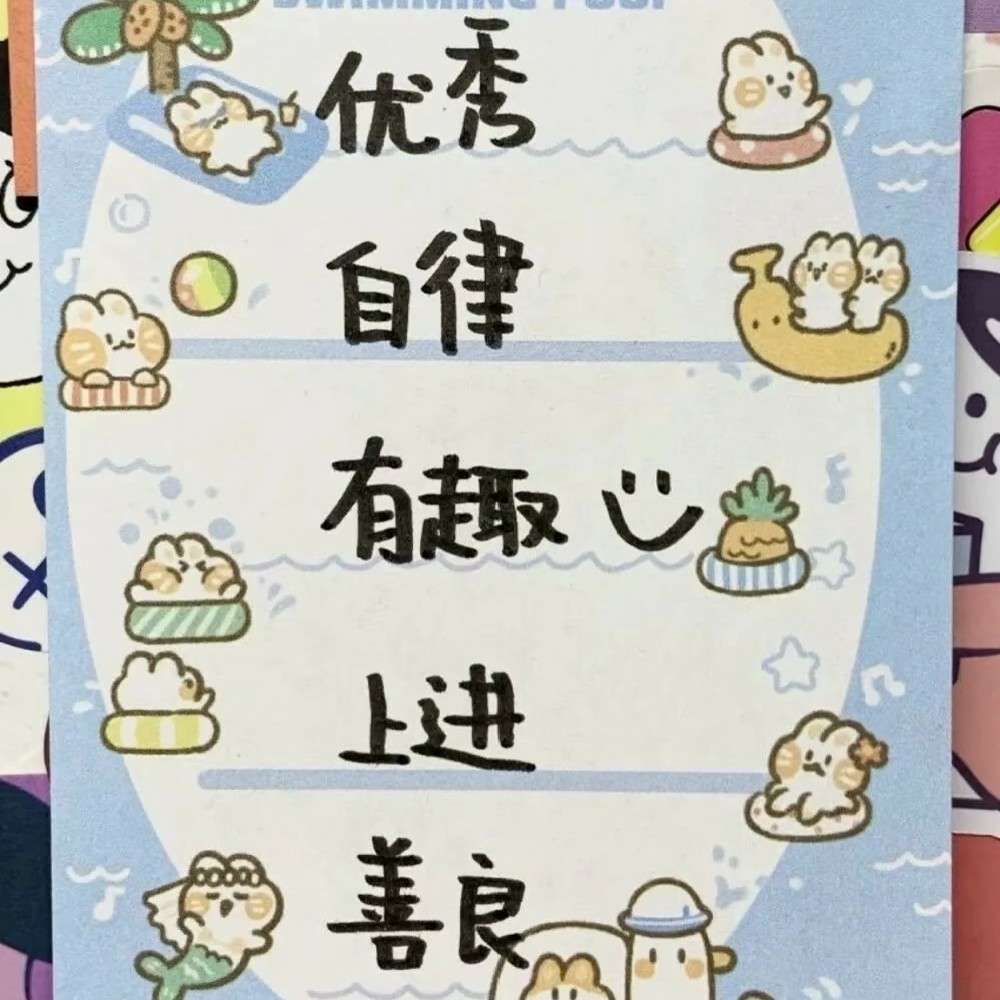 SWIMMING POOL
优秀
自律
有趣
上进
善良